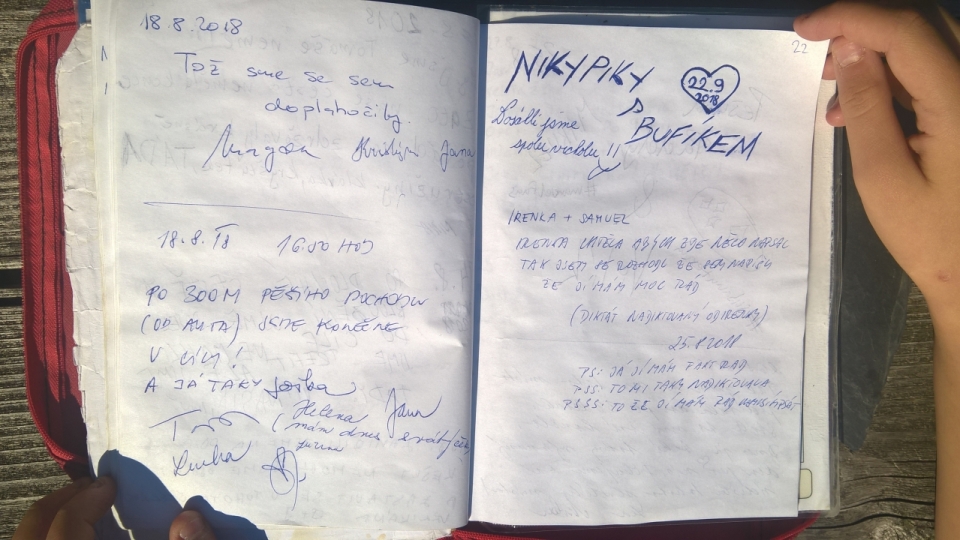 18.8.2018
Tož sme se sem
doplahočily.
Kristýn Jana
18.8.18 16:00 HOD
PO 300M PĚŠÍHO POCHODU
(OD AUTA) JSME KONEČNĚ
V CÍLI!
A JÁ TAKY Jožka
Helena Jana
(mám dnes svátek
Lenka
22
NIKYPIKY
22.9
2018
S
BUFÍKEM
Došli jsme
spolu vrcholu !!
IRENKA + SAMUEL
IRENKA CHTĚLA ABYCH ZDE NĚCO NAPSAL
TAK JSEM SE ROZHODL ŽE SEM NAPÍŠU
ŽE JÍ MÁM MOC RÁD
(DIKTÁT NADIKTOVANÝ OD IRENKY)
25.8.2018
PS: JA JÍ MÁM TAKY RÁD
PSS: TO MI TAKY NADIKTOVALA
PSSS: TO ŽE JÍ MÁM RÁD